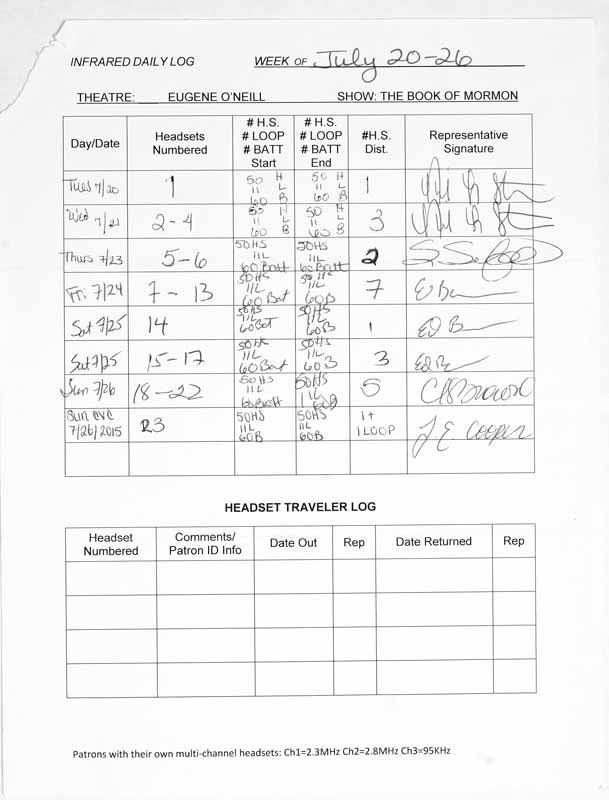 INFRARED DAILY LOG WEEK OF July 20-26
THEATRE: EUGENE O'NEILL SHOW: THE BOOK OF MORMON
Day/Date Headsets Numbered # H.S. # LOOP # BATT Start # H.S. # LOOP # BATT End #H.S. Dist. Representative Signature
Tues 7/20 1 50 H 11 L 60 B 50 H 11 L 60 B 1
Wed 7/21 2-4 50 H 11 L 60 B 50 H 11 L 60 B 3
Thurs 7/23 5-6 50HS 11L 60Batt 50HS 11L 60Batt 2
Fri 7/24 7-13 50HS 11L 60Bat 50HS 11L 60B 7
Sat 7/25 14 50HS 11L 60Bat 50HS 11L 60B 1
Sat 7/25 15-17 50HS 11L 60Batt 50HS 11L 60B 3
Sun 7/26 18-22 50HS 11L 60Batt 50HS 11L 60B 5 C Brown
Sun eve 7/26/2015 23 50HS 11L 60B 50HS 11L 60B 1+ 1LOOP J. E. Cooper
HEADSET TRAVELER LOG
Headset Numbered Comments/ Patron ID Info Date Out Rep Date Returned Rep
Patrons with their own multi-channel headsets: Ch1=2.3MHz Ch2=2.8MHz Ch3=95KHz